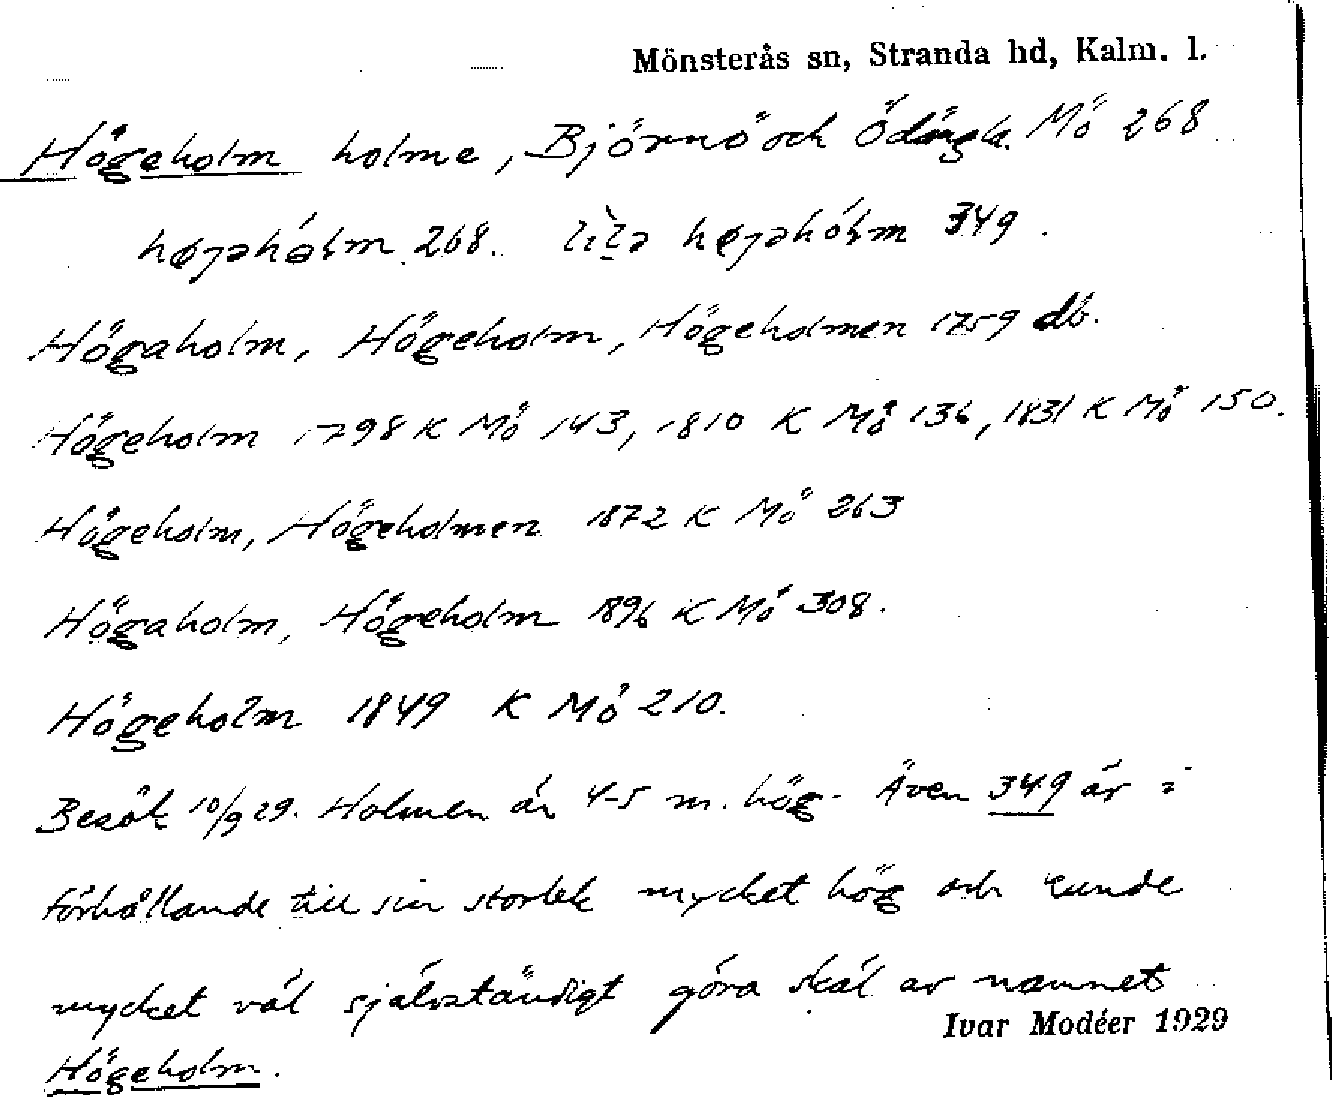 Mönsterås sn, Stranda hd, Kalm. l.
Högeholm holme, Björnö och Ödängla. Mö 268
høgəhólm 268. lìlə høgəhólm 349.
Högaholm, Högeholm, Högeholmen 1759 db.
Högeholm 1798 K Mö 143, 1810 K Mö 136, 1831 K Mö 150.
Högeholm, Högeholmen 1872 K Mö 263
Högaholm, Högeholm 1896 K Mö 308.
Högeholm 1849 K Mö 210.
Besök 10/9 29. Holmen är 4-5 m. hög. Även 349 är i
förhållande till sin storlek mycket hög och kunde
mycket väl självständigt göra skäl av namnet
Ivar Modéer 1929
Högeholm.